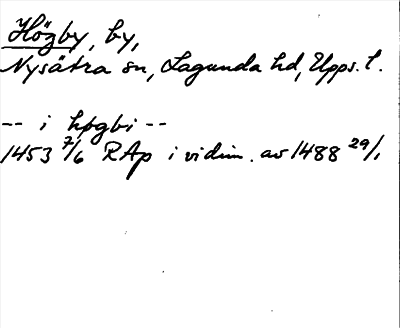 Högby, by,
Nysätra sn, Lagunda hd, Upps. l.
-- i høgbi --
1453 7/6 RAp i vidim. av 1488 29/1